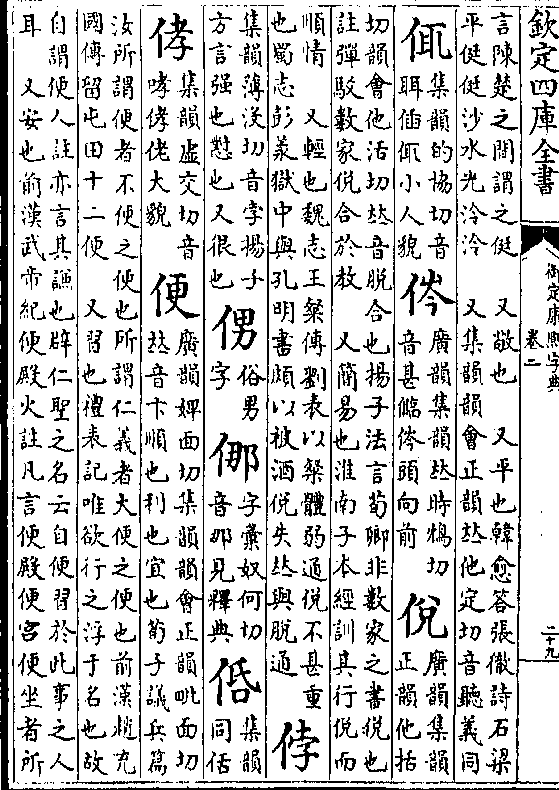 欽定四庫全書
御定康熙字典
卷二
二十九
言陳楚之間謂之侹 又敬也 又平也韓愈答張徹詩石梁
平侹侹沙水光泠泠 又集韻韻會正韻𠀤他定切音聽義同
㑙
集韻的協切音
聑偛㑙小人貌
㑗
廣韻集韻𠀤時鴆切
音甚臨㑗頭向前
侻
廣韻集韻
正韻他括
切韻會他活切𠀤音脫合也揚子法言荀卿非數家之書侻也
註彈駁數家侻合於敎 又簡易也淮南子本經訓其行侻而
順情 又輕也魏志王粲傳劉表以粲體弱通侻不甚重
也蜀志彭羕獄中與孔明書頗以被酒侻失𠀤與脫通
侼
集韻薄沒切音孛揚子
方言强也懟也又很也
侽
俗男
字
㑚
字彙奴何切
音那見釋典
集韻
同佸
侾
集韻虛交切音
哮侾佬大貌
便
廣韻婢面切集韻韻會正韻毗面切
𠀤音卞順也利也宜也荀子議兵篇
汝所謂便者不便之便也所謂仁義者大便之便也前漢趙充
國傳留屯田十二便 又習也禮表記唯欲行之浮于名也故
自謂便人註亦言其謙也辟仁聖之名云自便習於此事之人
耳 又安也前漢武帝紀便殿火註凡言便殿便宮便坐者所